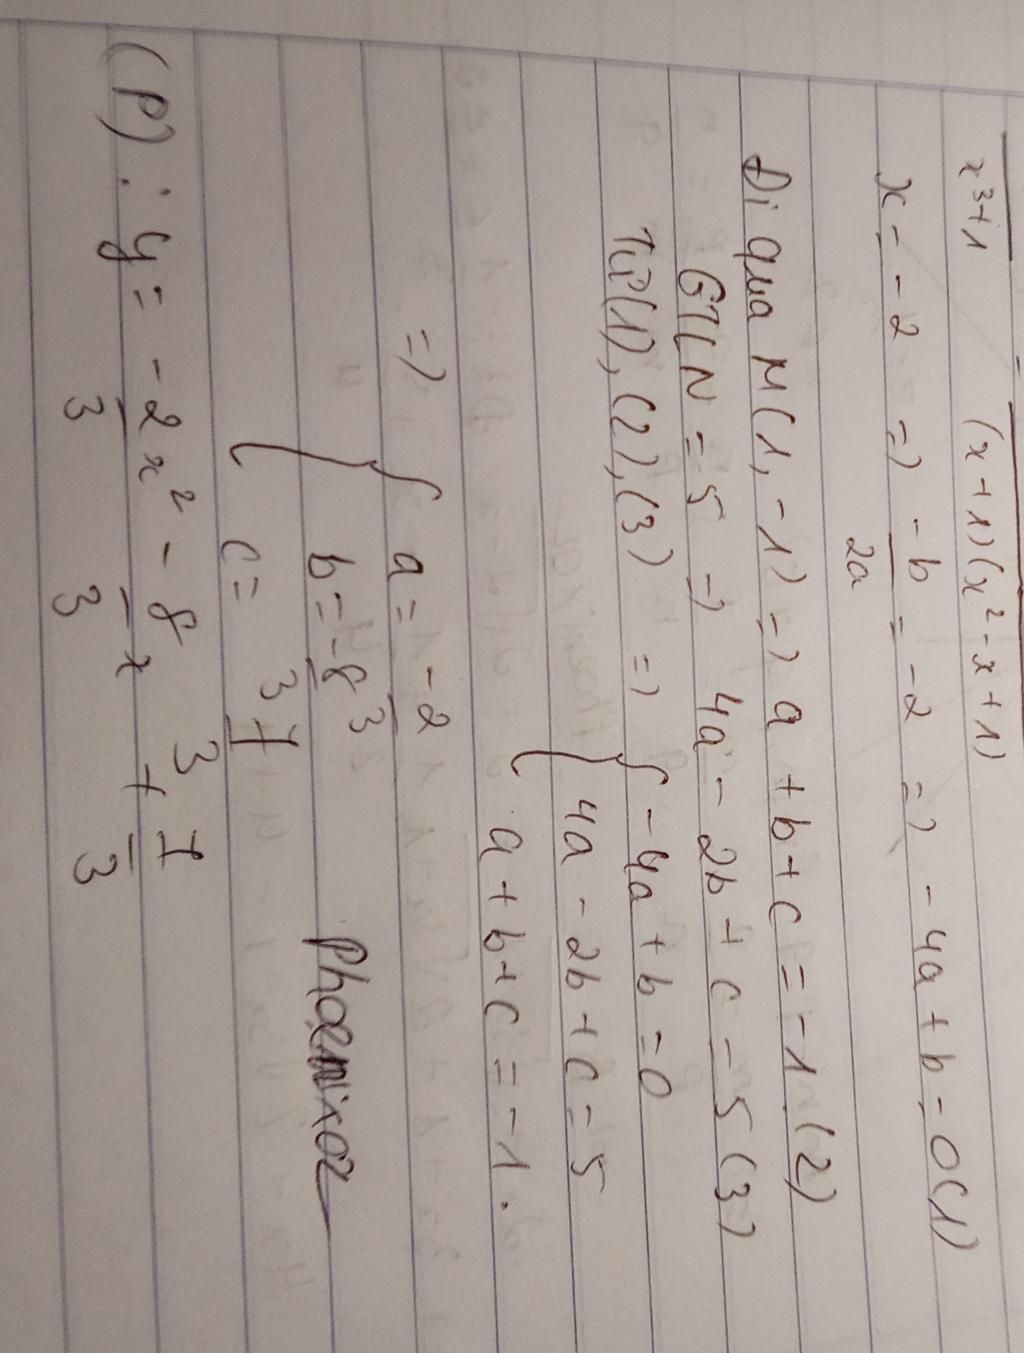 x³+1 (x+1)(x²-x+1)
x = -2 => -b/2a = -2 => -4a + b = 0 (1)
Đi qua M(1, -1) => a + b + c = -1 (2)
GTLN = 5 => 4a - 2b + c = 5 (3)
Từ (1), (2), (3) => { -4a + b = 0
4a - 2b + c = 5
a + b + c = -1.
=> { a = -2/3
b = -8/3
c = 7/3
Phoenixoz
(P) : y = -2/3 x² - 8/3 x + 7/3